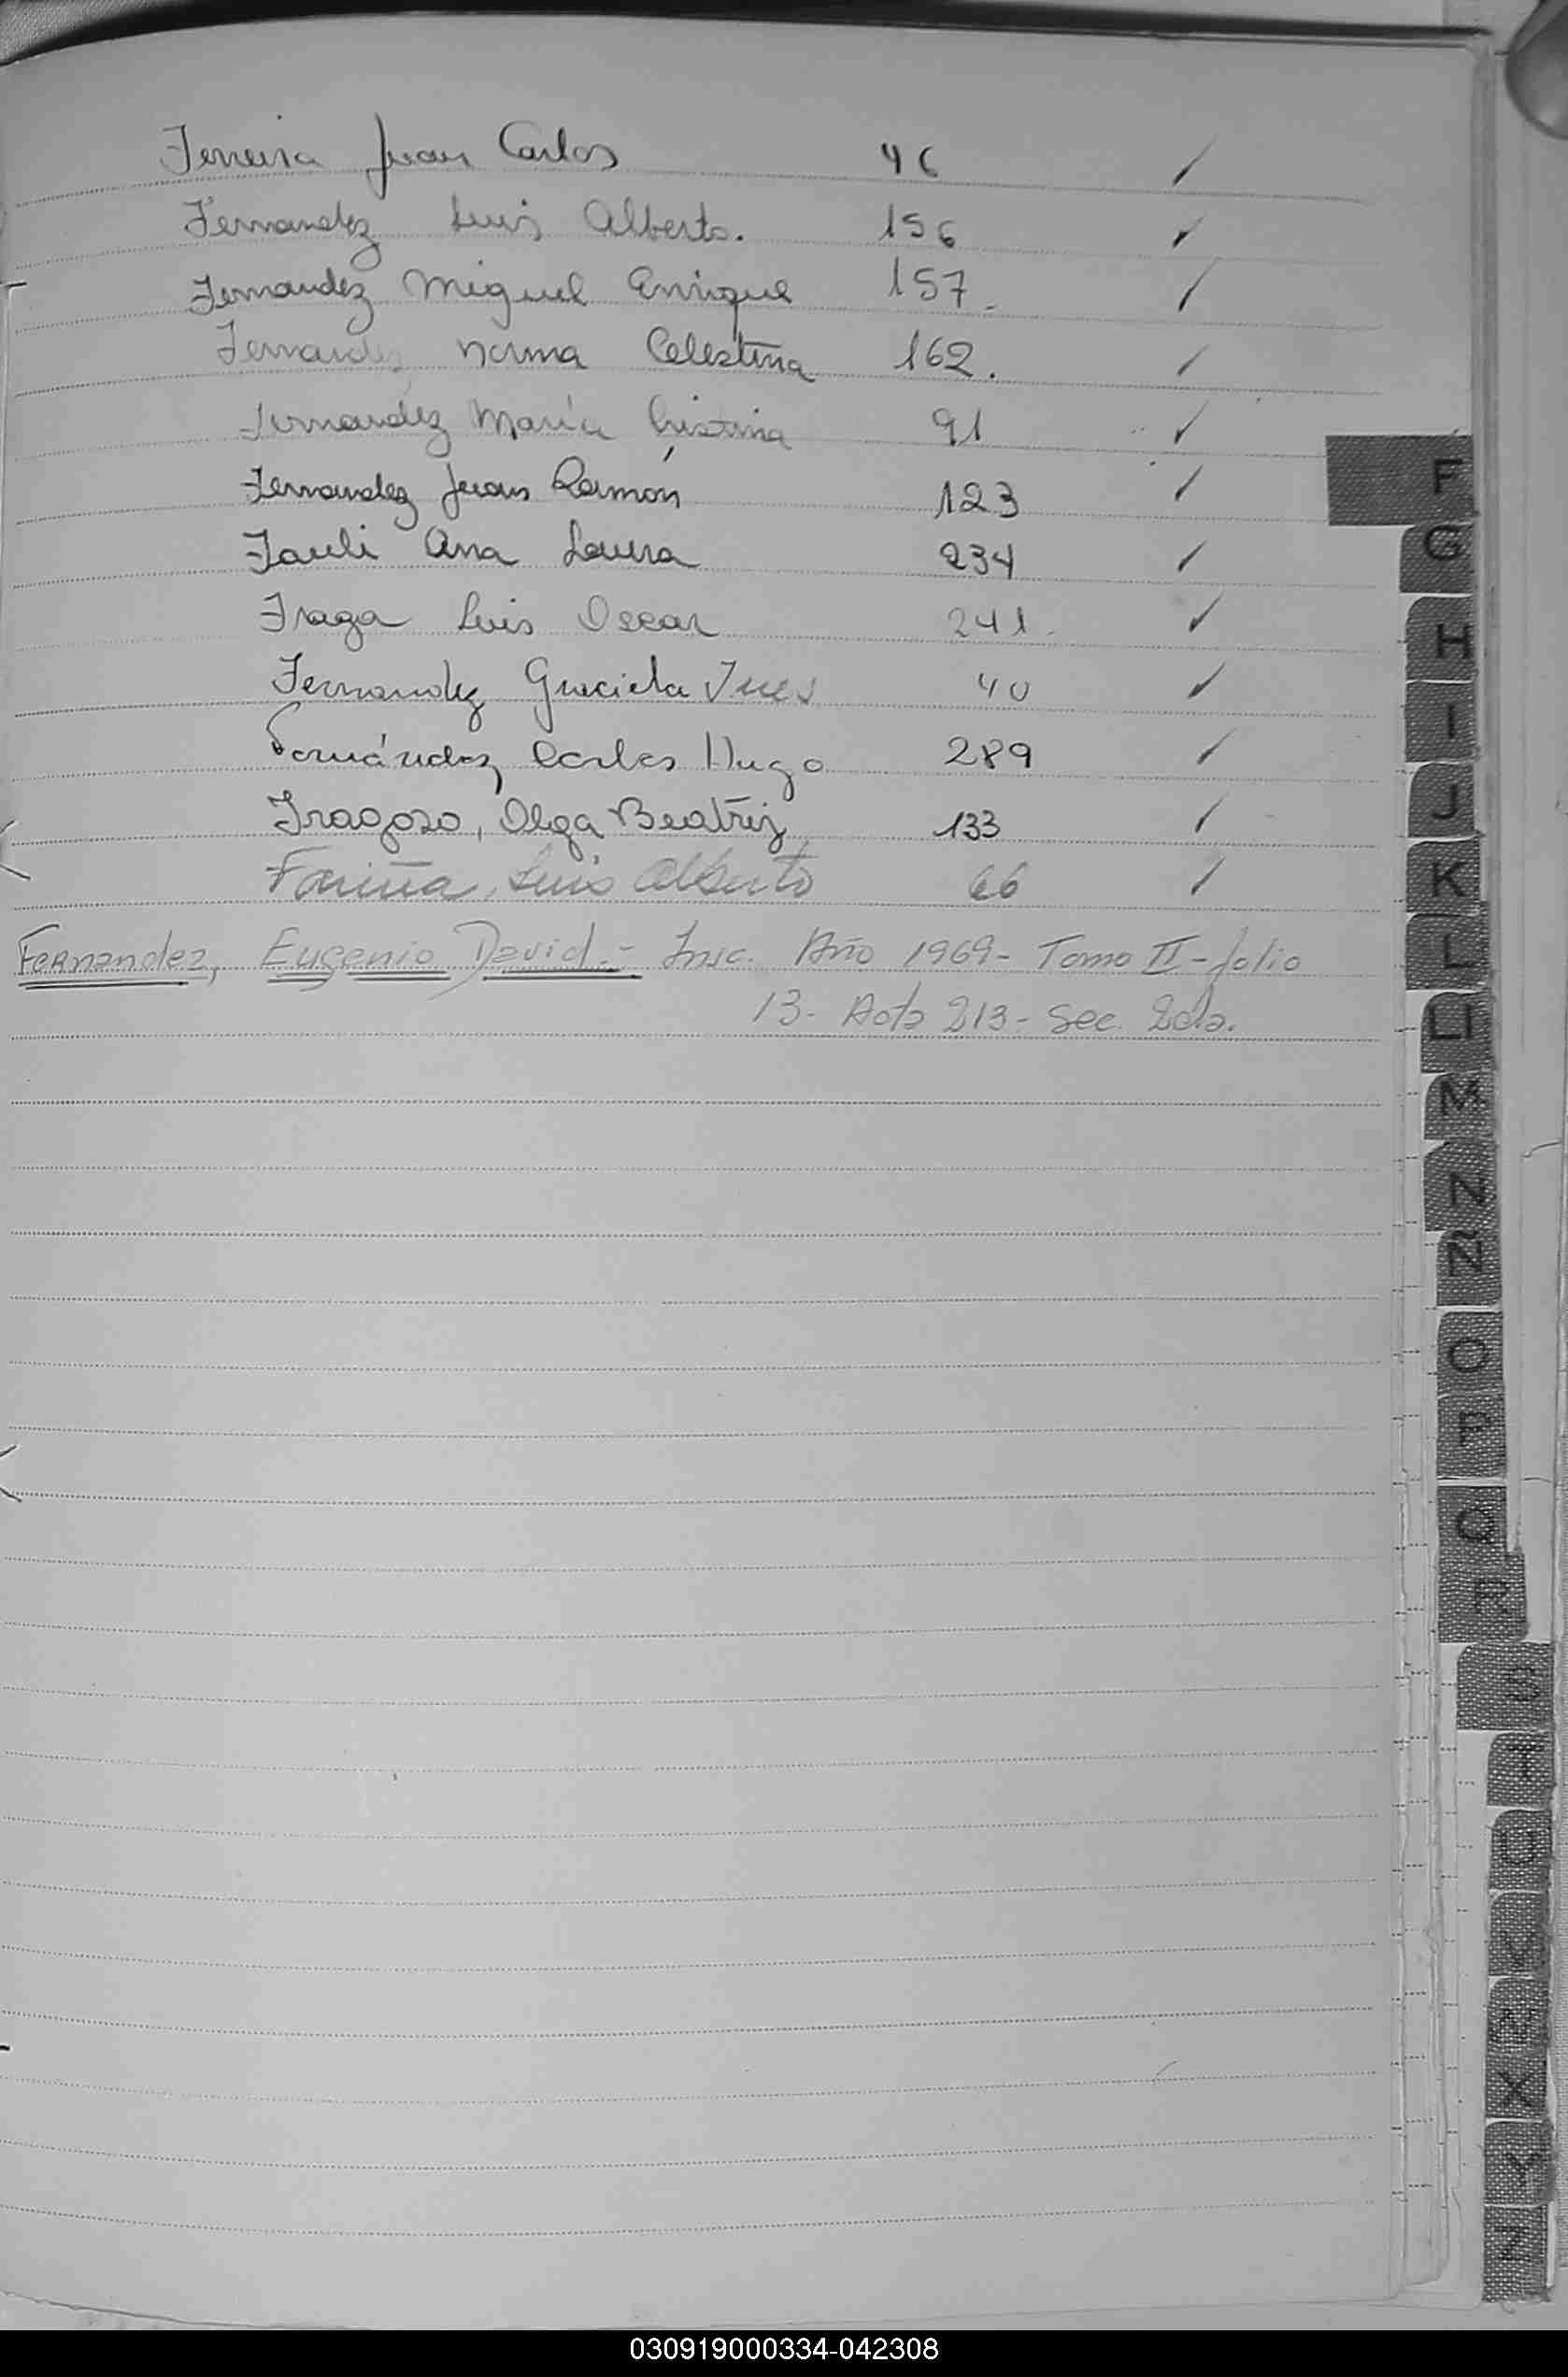 Ferreira Juan Carlos 46 ✓
Fernandez Luis Alberto. 156 ✓
Fernandez Miguel Enrique 157. ✓
Fernandez Norma Celestina 162. ✓
Fernandez María Cristina 91 ✓
Fernandez Juan Ramón 123 ✓
Fauli Ana Laura 234 ✓
Fraga Luis Oscar 241. ✓
Fernandez Graciela Ines 40 ✓
Fernández, Carlos Hugo 289 ✓
Fragoso, Olga Beatriz 133 ✓
Fariña, Luis Alberto 66 ✓
Fernandez, Eugenio David.- Insc. Año 1969- Tomo II- folio
13- Acta 213- Sec. 2da.
F
G
H
I
J
K
L
Ll
M
N
Ñ
O
P
Q
R
S
T
U
V
W
X
Y
Z
030919000334-042308